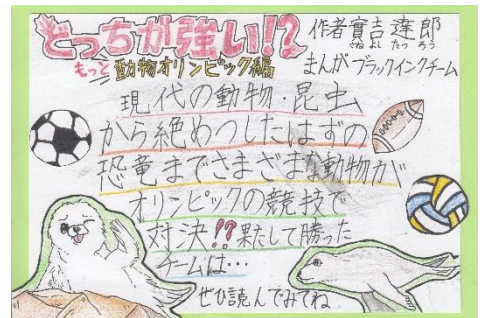 どっちが強い!?
もっと動物オリンピック編
作者 實吉達郎
さねよし たつ ろう
まんが ブラックインクチーム
現代の動物・昆虫
から絶めつしたはずの
恐竜までさまざまな動物が
オリンピックの競技で
対決!?果たして勝った
チームは…
ぜひ読んでみてね